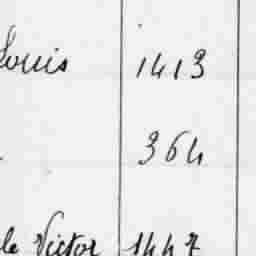 Louis 1413
364
de Victor 1447